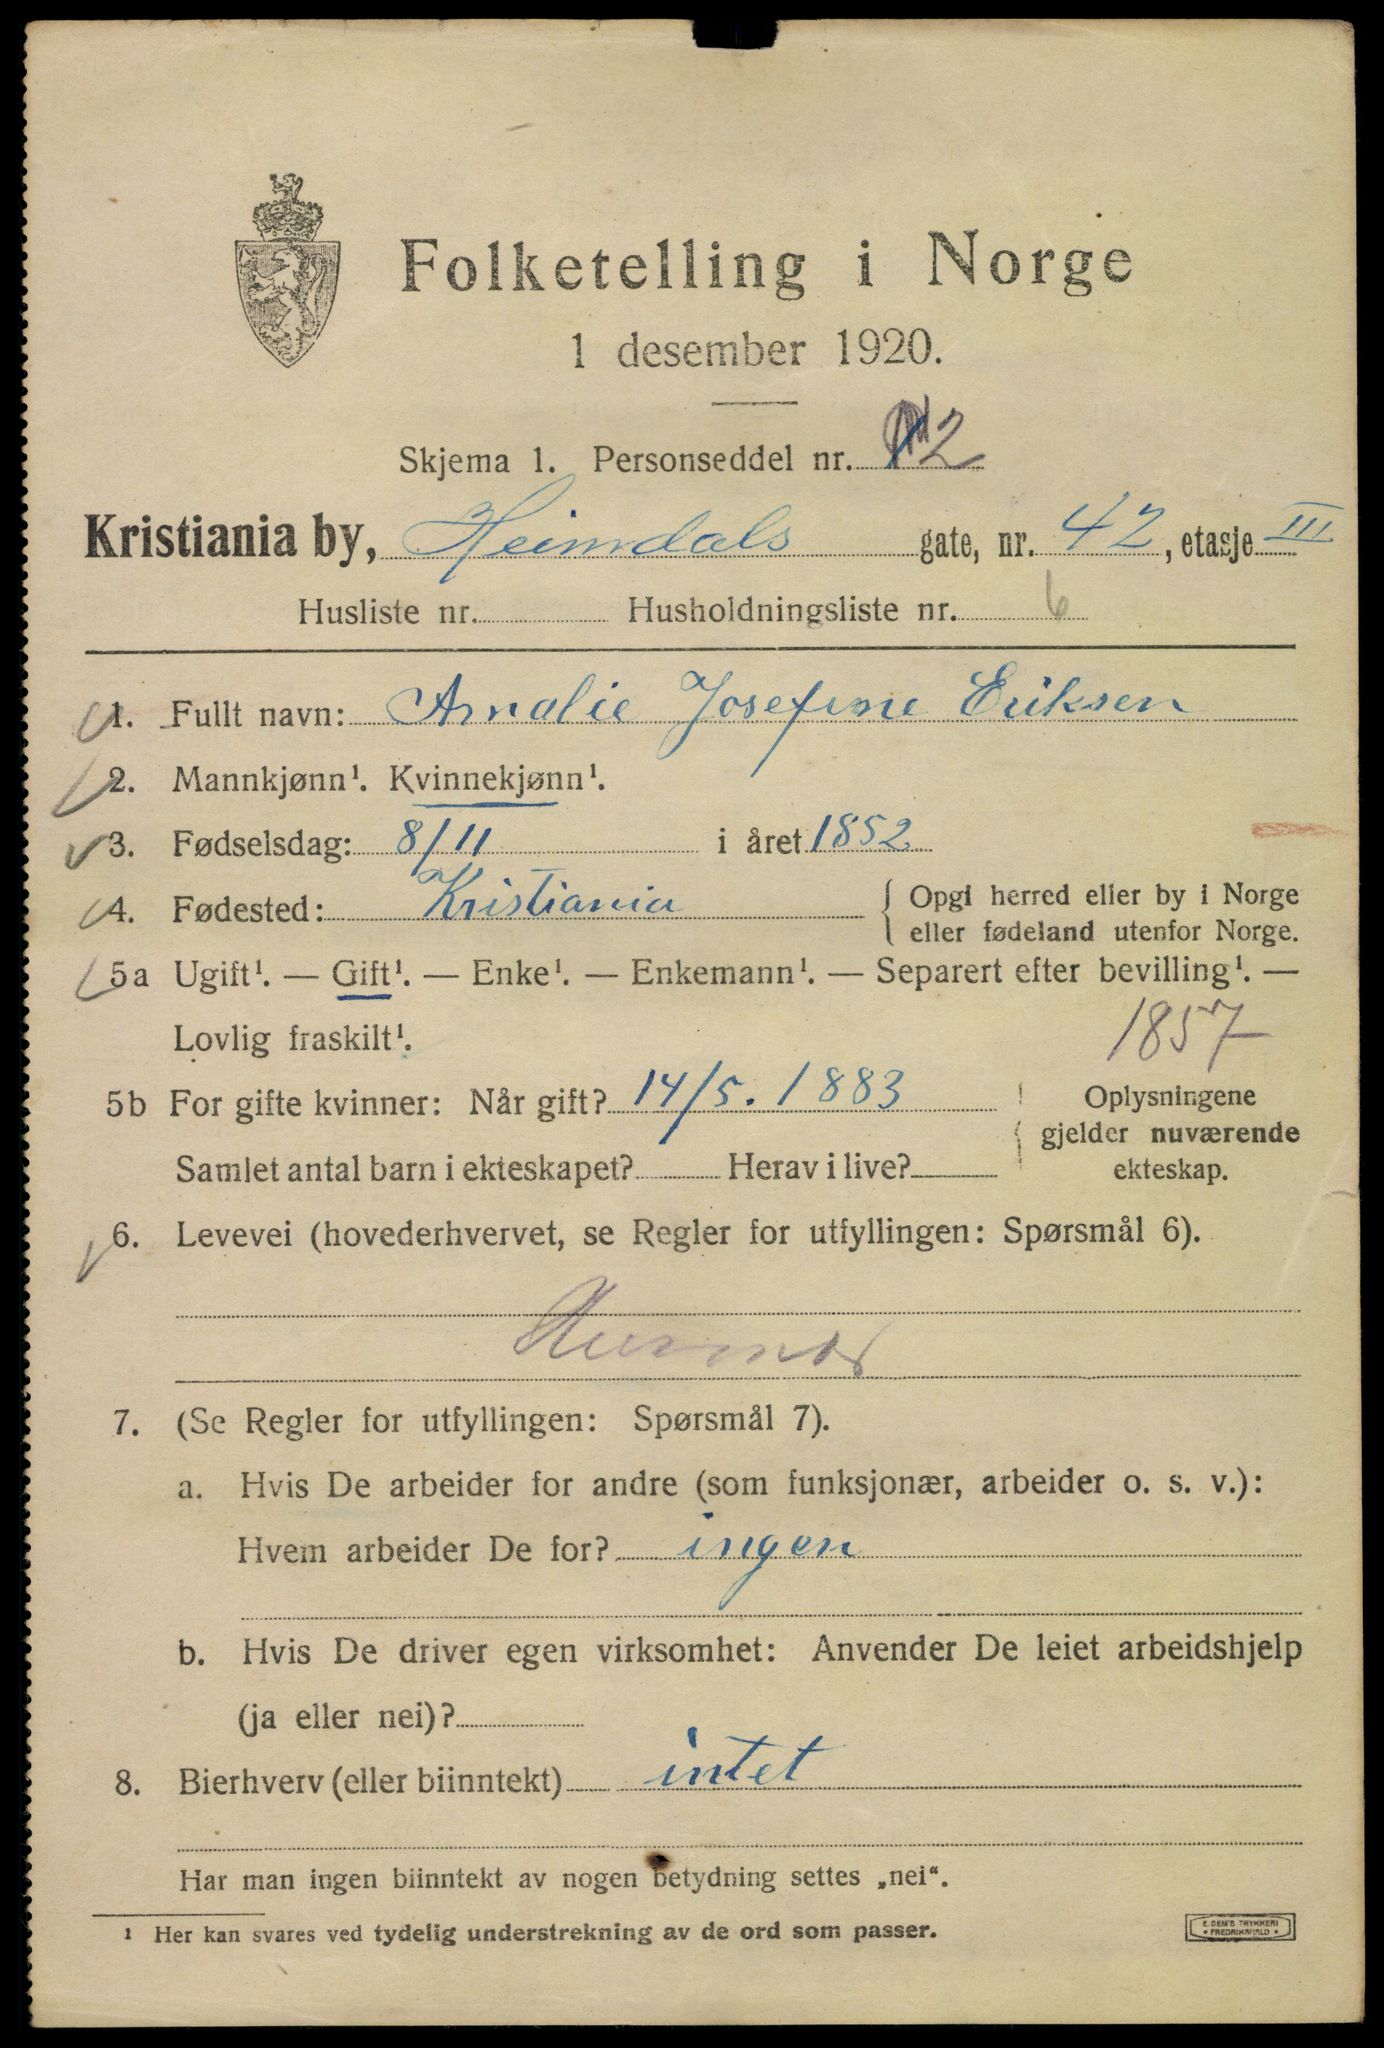 Folketelling i Norge
1 desember 1920.
Skjema 1. Personseddel nr. 2
Kristiania by, Heimdals gate, nr. 42, etasje III
Husliste nr. Husholdningsliste nr. 6
1. Fullt navn: Amalie Josefine Eriksen
2. Mannkjønn¹. Kvinnekjønn¹.
3. Fødselsdag: 8/11 i året 1852
4. Fødested: Kristiania { Opgi herred eller by i Norge
eller fødeland utenfor Norge.
5a Ugift¹. — Gift¹. — Enke¹. — Enkemann¹. — Separert efter bevilling¹. —
Lovlig fraskilt¹. 1857
5b For gifte kvinner: Når gift? 14/5. 1883
Samlet antal barn i ekteskapet? Herav i live?
Oplysningene
gjelder nuværende
ekteskap.
6. Levevei (hovederhvervet, se Regler for utfyllingen: Spørsmål 6).
Husmor
7. (Se Regler for utfyllingen: Spørsmål 7).
a. Hvis De arbeider for andre (som funksjonær, arbeider o. s. v.):
Hvem arbeider De for? ingen
b. Hvis De driver egen virksomhet: Anvender De leiet arbeidshjelp
(ja eller nei)?
8. Bierhverv (eller biinntekt) intet
Har man ingen biinntekt av nogen betydning settes „nei“.
¹ Her kan svares ved tydelig understrekning av de ord som passer.
E. SEM'S TRYKKERI
• FREDRIKSHALD •